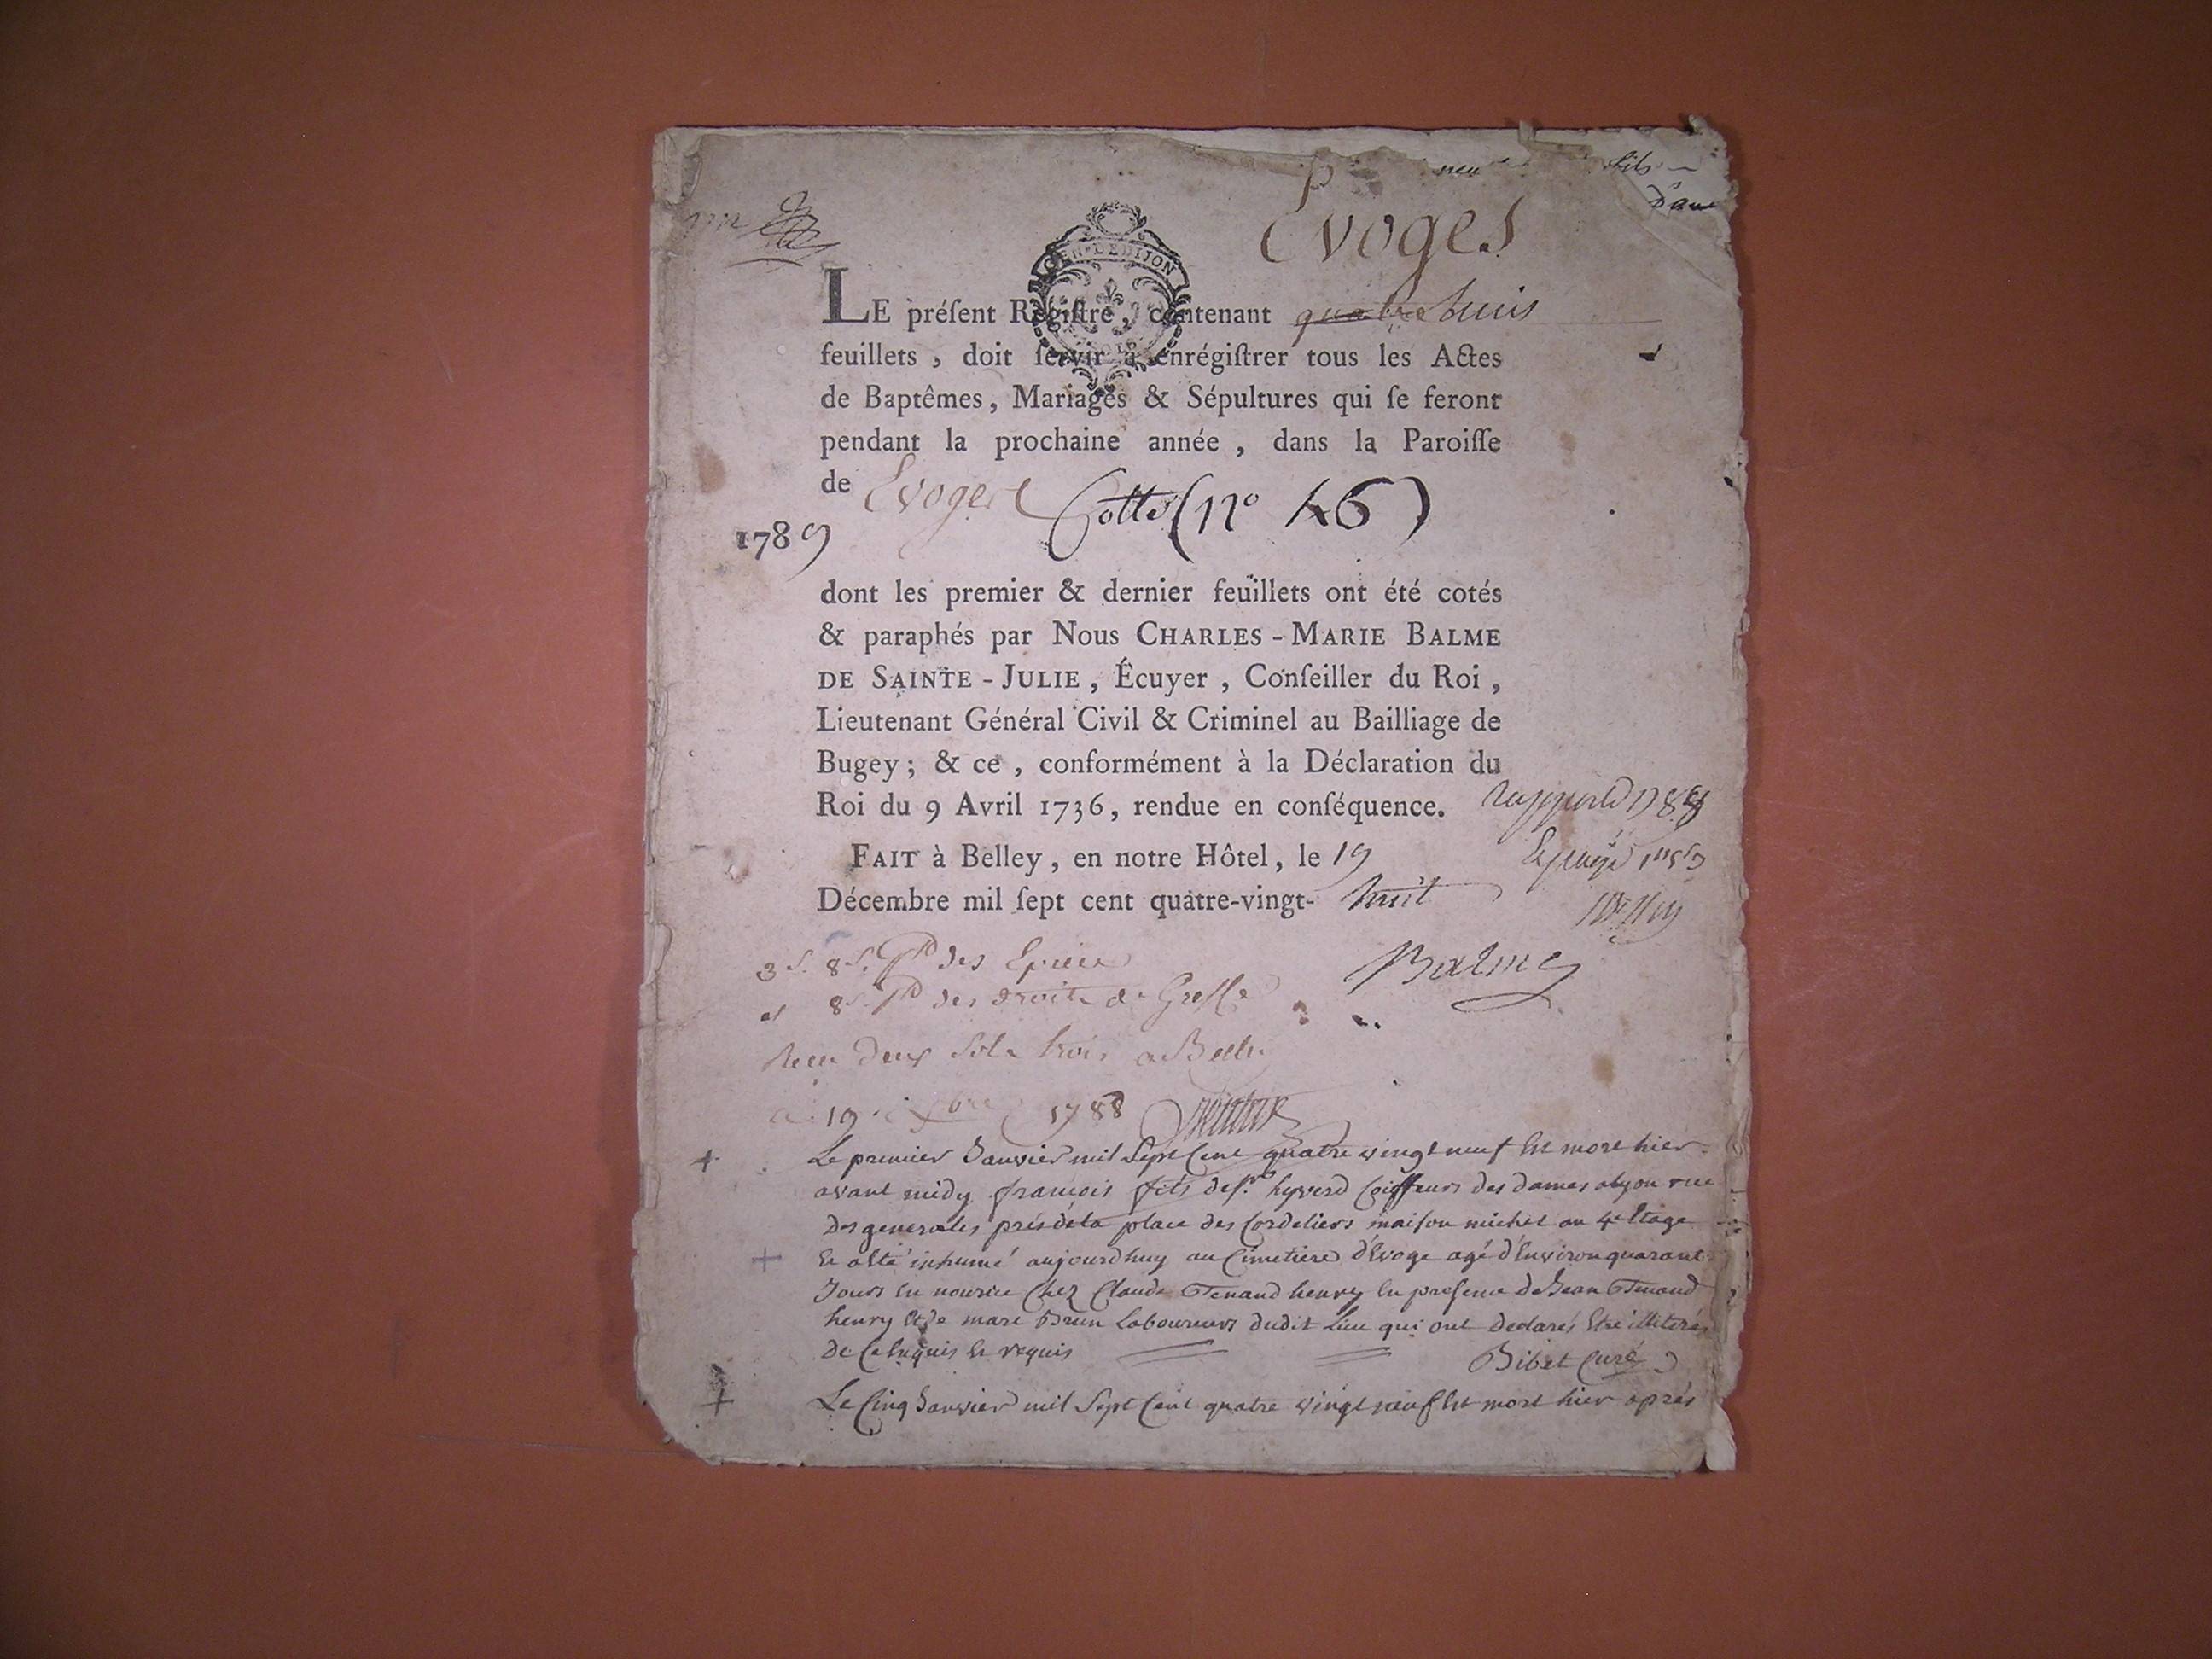 Evoges
GEN. DE DIJON
LE préſent Régiſtre, contenant quatre huis
feuillets, doit ſervir à enrégiſtrer tous les Actes
de Baptêmes, Mariages & Sépultures qui ſe feront
pendant la prochaine année, dans la Paroiſſe
de Evoges Cotte (no 46)
1789
dont les premier & dernier feuillets ont été cotés
& paraphés par Nous CHARLES-MARIE BALME
DE SAINTE-JULIE, Écuyer, Conſeiller du Roi,
Lieutenant Général Civil & Criminel au Bailliage de
Bugey; & ce, conformément à la Déclaration du
Roi du 9 Avril 1736, rendue en conſéquence.
FAIT à Belley, en notre Hôtel, le 19
Décembre mil ſept cent quatre-vingt-huit
Balme
3 s. 8 d. des Epices
8 s. des droits de Greffe
Receu deux sols trois a Belley
19 1788
Le premier Janvier mil Sept Cent quatre vingt neuf Est mort hier
avant midy francois fils de sr. hyverd Coiffeurs des dames alyon rue
des generales près de la place des Cordeliers maison michel au 4e Etage
Et a Eté inhumé aujourdhuy au Cimetiere d'Evoge agé d'Environ quarante
Jours En nourice Chez Claude Tenand henry En presence de Jean Tenand
henry Et de marc Brun Laboureurs dudit Lieu qui ont declarés Etre illiterés
de Ce Enquis Et requis
Bibet Curé
Le Cinq Janvier mil Sept Cent quatre vingt neuf Est mort hier aprés